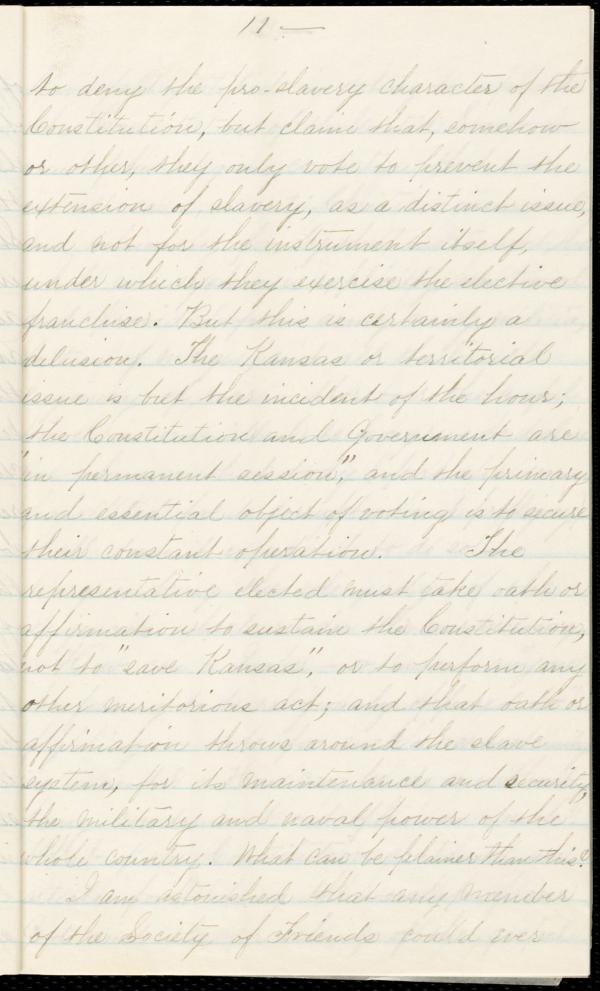 11 —
to deny the pro-slavery character of the
Constitution, but claim that, somehow
or other, they only vote to prevent the
extension of slavery, as a distinct issue,
and not for the instrument itself,
under which they exercise the elective
franchise. But this is certainly a
delusion. The Kansas or territorial
issue is but the incident of the hour;
the Constitution and Government are
"in permanent session", and the primary
and essential object of voting is to secure
their constant operation. The
representative elected must take oath or
affirmation to sustain the Constitution,
not to "save Kansas", or to perform any
other meritorious act; and that oath or
affirmation throws around the slave
system, for its maintenance and security,
the military and naval power of the
whole country. What can be plainer than this?
I am astonished that any member
of the Society of Friends could ever